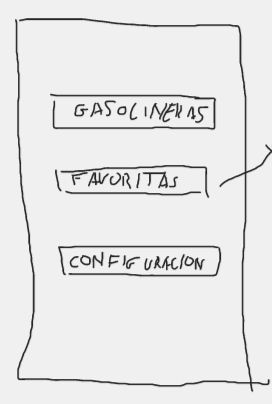 GASOLINERAS
FAVORITAS
CONFIGURACION